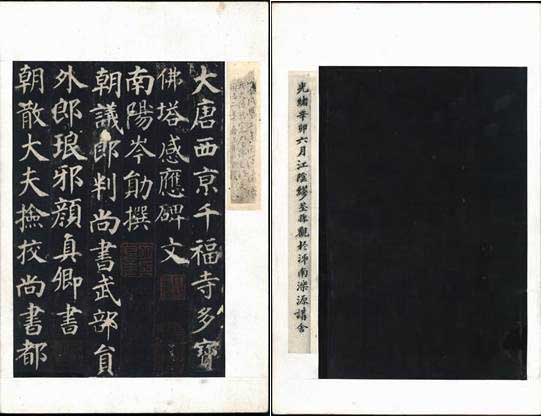 大唐西京千福寺多寶
佛塔感應碑文
南陽岑勛撰
朝議郎判尚書武部員
外郎琅邪顏真卿書
朝散大夫撿挍尚書都
光緒辛卯六月江陰繆荃孫觀於濟南濼源講舍